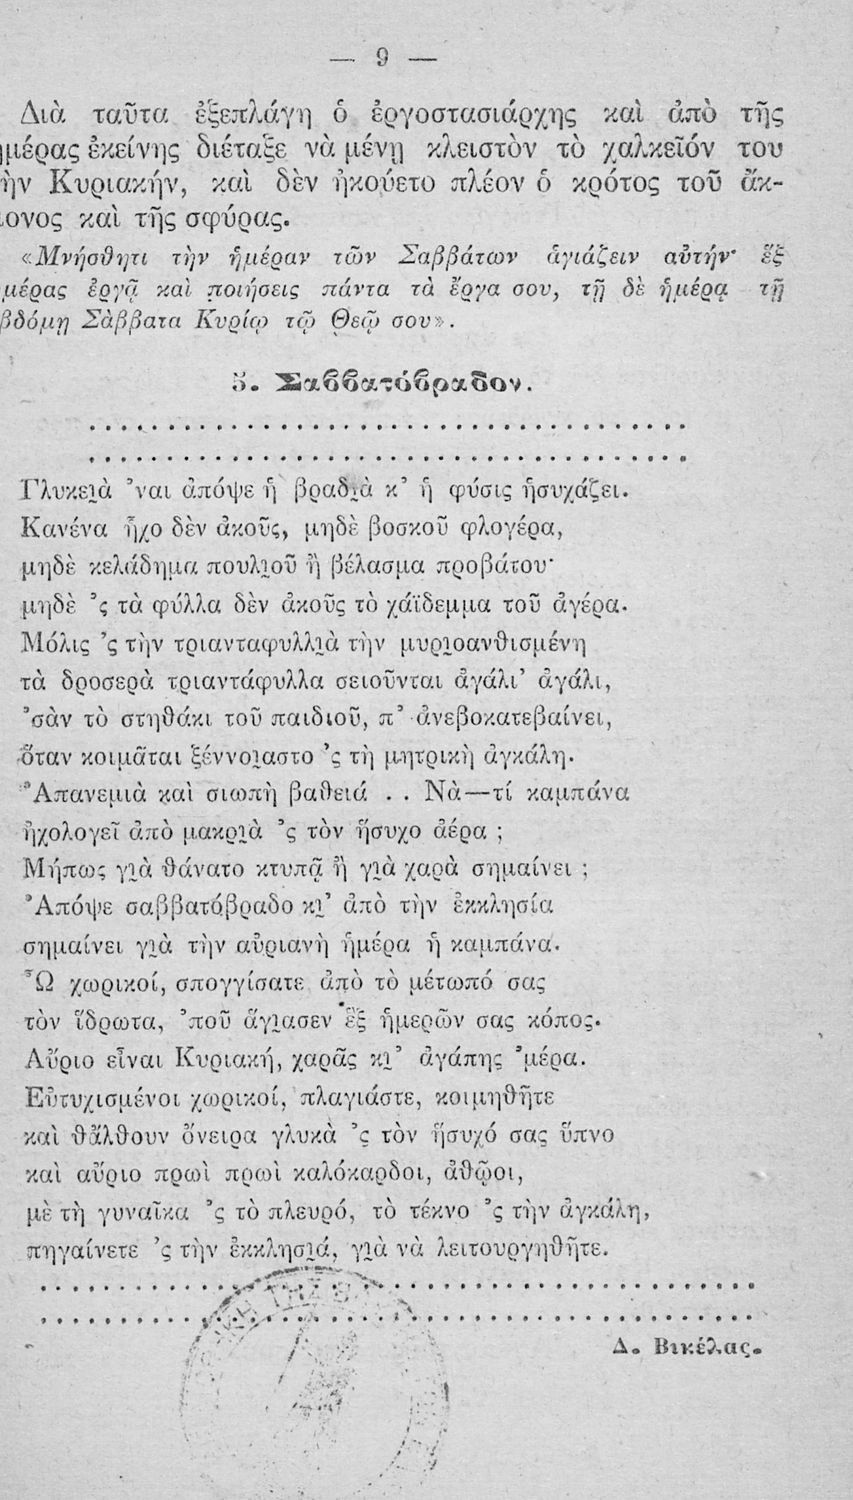 — 9 —
Διὰ ταῦτα ἐξεπλάγη ὁ ἐργοστασιάρχης καὶ ἀπὸ τῆς
ημέρας ἐκείνης διέταξε νὰ μένῃ κλειστὸν τὸ χαλκεῖόν του
ὴν Κυριακήν, καὶ δὲν ἠκούετο πλέον ὁ κρότος τοῦ ἄκ-
ονος καὶ τῆς σφύρας.
«Μνήσθητι τὴν ἡμέραν τῶν Σαββάτων ἁγιάζειν αὐτήν· ἓξ
μέρας ἐργᾷ καὶ ποιήσεις πάντα τὰ ἔργα σου, τῇ δὲ ἡμέρᾳ τῇ
βδόμῃ Σάββατα Κυρίῳ τῷ Θεῷ σου».
5. Σαββατόβραδον.
Γλυκει̯ὰ ’ναι ἀπόψε ἡ βραδι̯ὰ κ’ ἡ φύσις ἡσυχάζει.
Κανένα ἦχο δὲν ἀκοῦς, μηδὲ βοσκοῦ φλογέρα,
μηδὲ κελάδημα πουλι̯οῦ ἢ βέλασμα προβάτου·
μηδὲ ’ς τὰ φύλλα δὲν ἀκοῦς τὸ χάϊδεμμα τοῦ ἀγέρα.
Μόλις ’ς τὴν τριανταφυλλι̯ὰ τὴν μυρι̯οανθισμένη
τὰ δροσερὰ τριαντάφυλλα σειοῦνται ἀγάλι’ ἀγάλι,
’σὰν τὸ στηθάκι τοῦ παιδιοῦ, π’ ἀνεβοκατεβαίνει,
ὅταν κοιμᾶται ξέννοι̯αστο ’ς τὴ μητρικὴ ἀγκάλη.
Ἀπανεμιὰ καὶ σιωπὴ βαθειά . . Νὰ—τί καμπάνα
ἠχολογεῖ ἀπὸ μακρι̯ὰ ’ς τὸν ἥσυχο ἀέρα ;
Μήπως γι̯ὰ θάνατο κτυπᾷ ἢ γι̯ὰ χαρὰ σημαίνει ;
Ἀπόψε σαββατόβραδο κι̯’ ἀπὸ τὴν ἐκκλησία
σημαίνει γι̯ὰ τὴν αὐριανὴ ἡμέρα ἡ καμπάνα.
Ὦ χωρικοί, σπογγίσατε ἀπὸ τὸ μέτωπό σας
τὸν ἵδρωτα, ’ποῦ ἅγι̯ασεν ἓξ ἡμερῶν σας κόπος.
Αὔριο εἶναι Κυριακή, χαρᾶς κι̯’ ἀγάπης ’μέρα.
Εὐτυχισμένοι χωρικοί, πλαγιάστε, κοιμηθῆτε
καὶ θἄλθουν ὄνειρα γλυκὰ ’ς τὸν ἥσυχό σας ὕπνο
καὶ αὔριο πρωὶ πρωὶ καλόκαρδοι, ἀθῷοι,
μὲ τὴ γυναῖκα ’ς τὸ πλευρό, τὸ τέκνο ’ς τὴν ἀγκάλη,
πηγαίνετε ’ς τὴν ἐκκλησι̯ά, γι̯ὰ νὰ λειτουργηθῆτε.
Δ. Βικέλας.